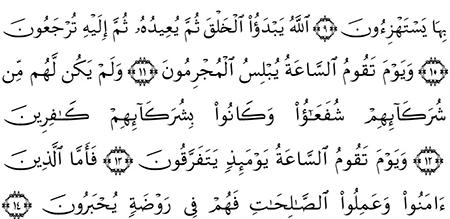 بِهَا يَسۡتَهۡزِءُونَ ﴿٩﴾ ٱللَّهُ يَبۡدَؤُاْ ٱلۡخَلۡقَ ثُمَّ يُعِيدُهُۥ ثُمَّ إِلَيۡهِ تُرۡجَعُونَ
﴿١٠﴾ وَيَوۡمَ تَقُومُ ٱلسَّاعَةُ يُبۡلِسُ ٱلۡمُجۡرِمُونَ ﴿١١﴾ وَلَمۡ يَكُن لَّهُم مِّن
شُرَكَآئِهِمۡ شُفَعَـٰٓؤُاْ وَكَانُواْ بِشُرَكَآئِهِمۡ كَـٰفِرِينَ
﴿١٢﴾ وَيَوۡمَ تَقُومُ ٱلسَّاعَةُ يَوۡمَئِذٍ يَتَفَرَّقُونَ ﴿١٣﴾ فَأَمَّا ٱلَّذِينَ
ءَامَنُواْ وَعَمِلُواْ ٱلصَّـٰلِحَـٰتِ فَهُمۡ فِى رَوۡضَةٍ يُحۡبَرُونَ ﴿١٤﴾